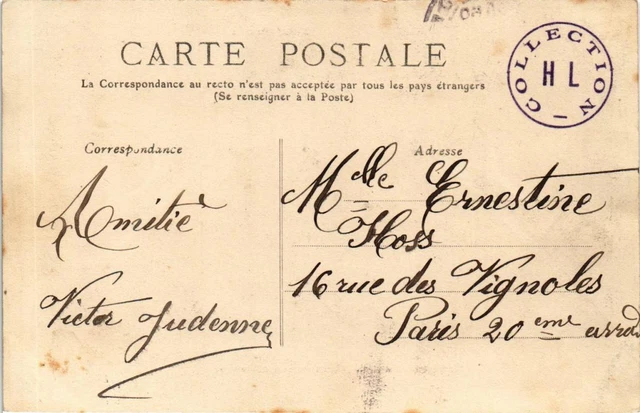 CARTE POSTALE
COLLECTION
H L
La Correspondance au recto n'est pas acceptée par tous les pays étrangers
(Se renseigner à la Poste)
Correspondance
Amitié
Victor Judenne
Adresse
Mlle Ernestine
Hoss
16 rue des Vignoles
Paris 20 eme arrod